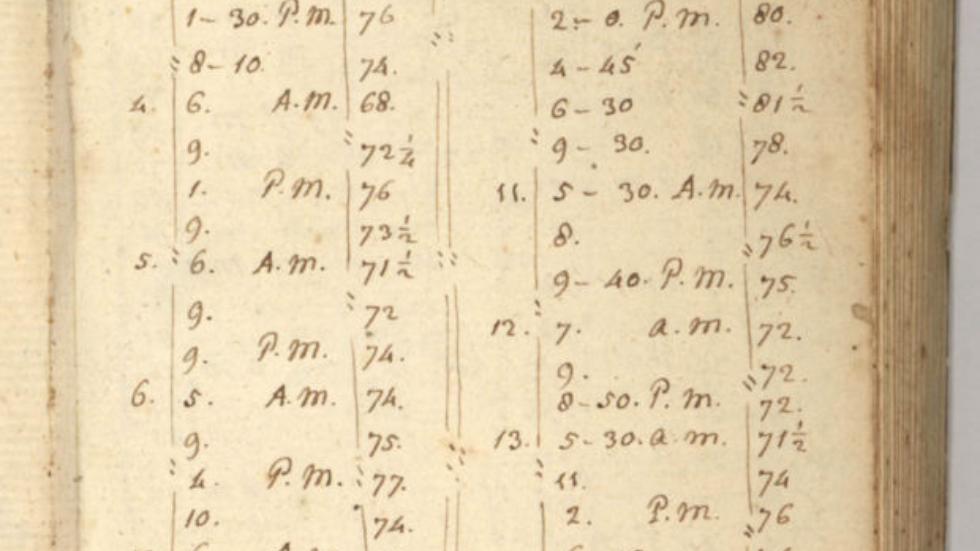 1-30. P.M. 76
8-10. 74.
4. 6. A.M. 68.
9. 72 1/4
1. P.M. 76
9. 73 1/2
5. 6. A.M. 71 1/2
9. 72
9. P.M. 74.
6. 5. A.M. 74.
9. 75.
4. P.M. 77.
10. 74.
2-0. P.M. 80.
4-45 82.
6-30 81 1/2
9-30. 78.
11. 5-30. A.M. 74.
8. 76 1/2
9-40. P.M. 75.
12. 7. a.m. 72.
9. 72.
8-50. P.M. 72.
13. 5-30. a.m. 71 1/2
11. 74
2. P.M. 76